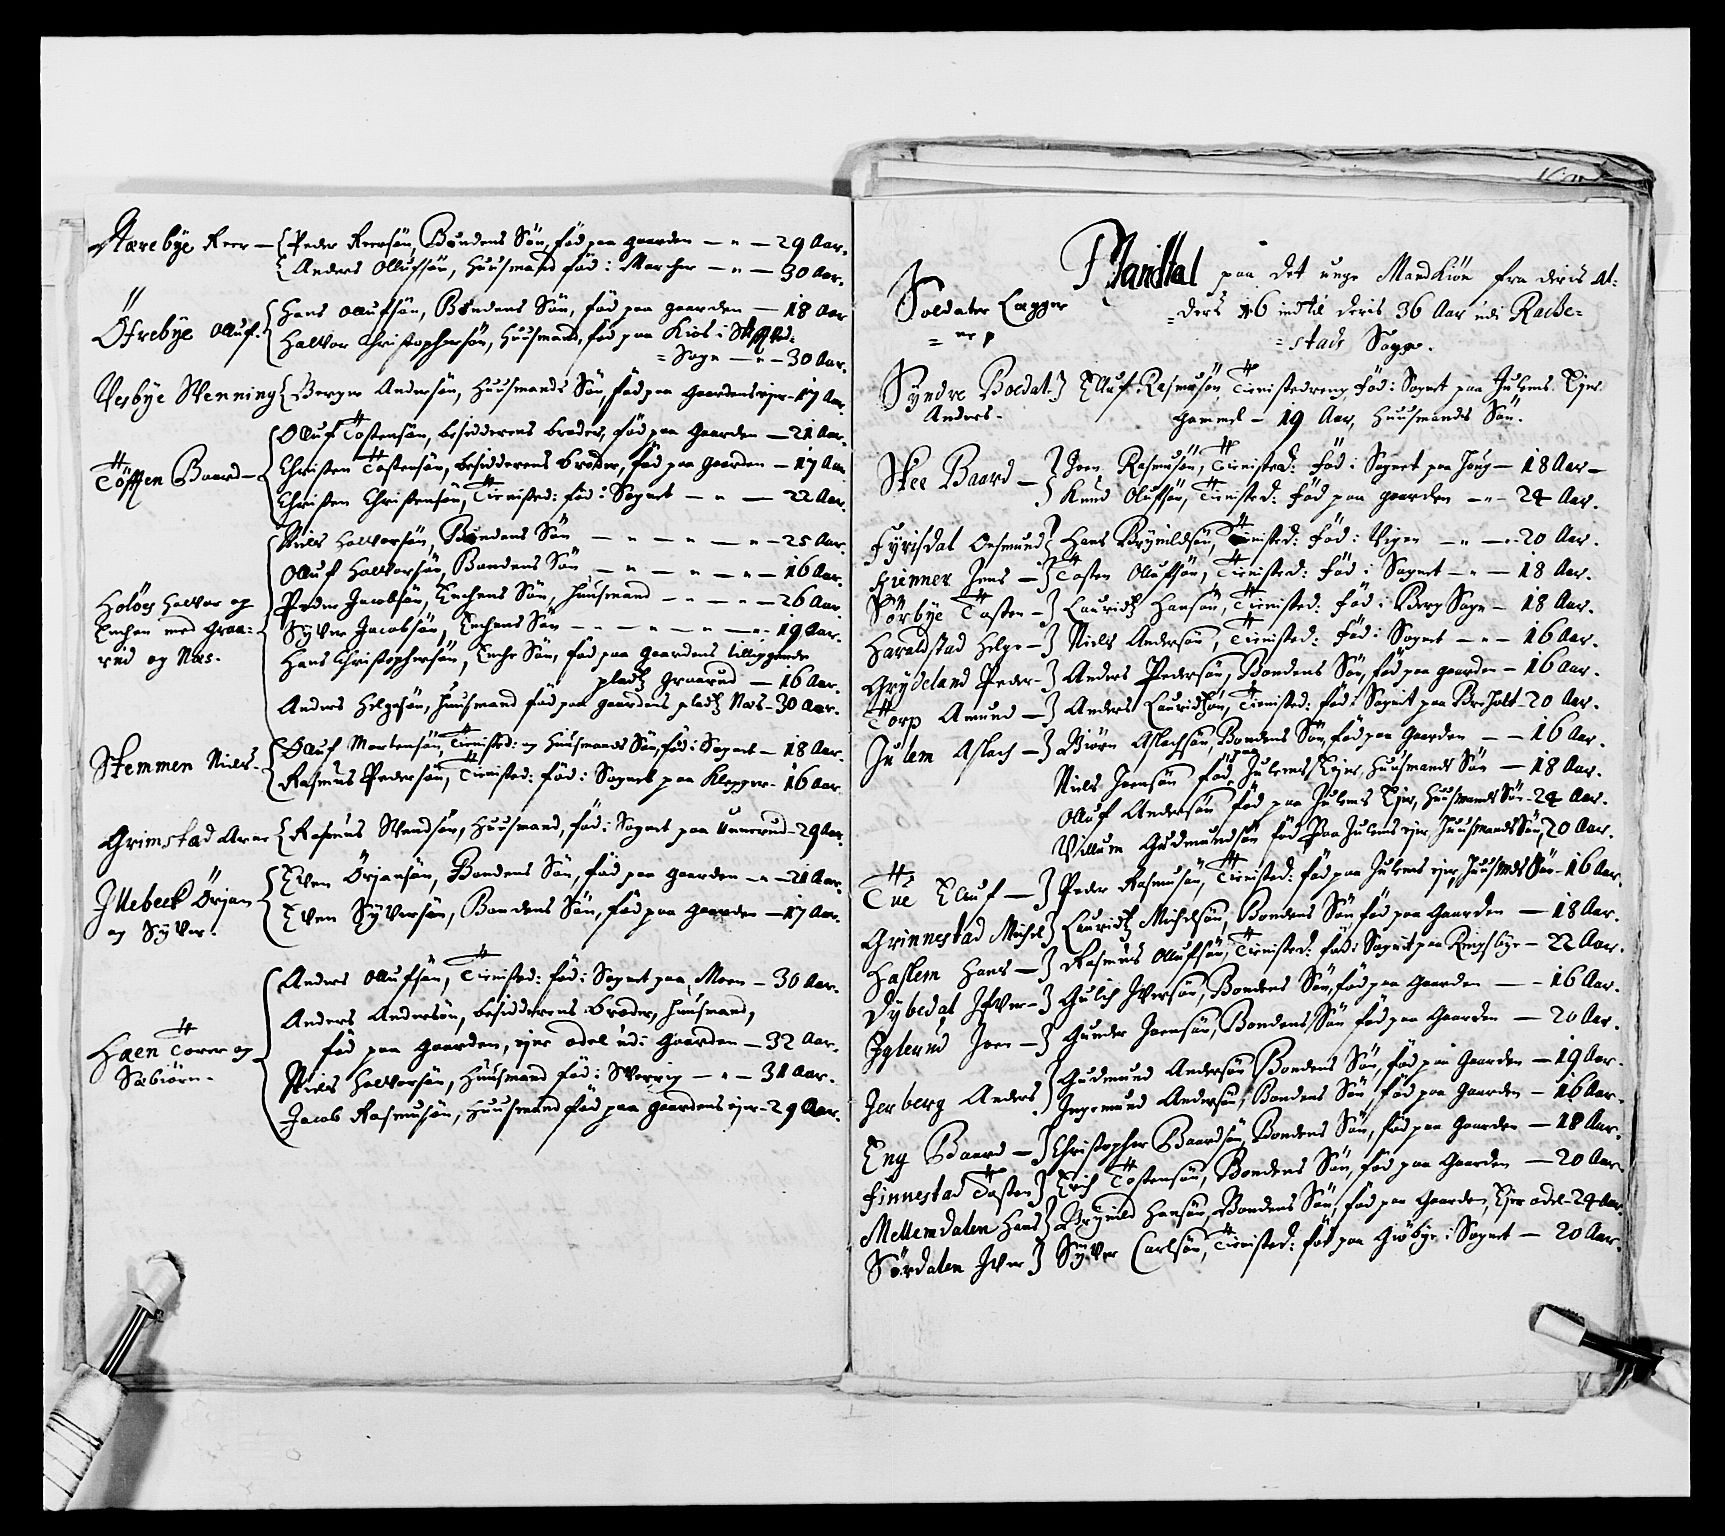 Nærebye Reer — Peder Reersön, Bondens Sön, föd paa gaarden — " — 29 Aar.
Anders Ollufsön, Huusmand föd i Marcher — " — 30 Aar.
Öfrebye Olluf. Hans Ollufsön, Bondens Sön, föd paa gaarden — 18 Aar
Halvor Christophersön, Huusmand, föd paa Kios i
= Sogn — " — 30 Aar.
Vesbye Svenning Berger Andersön, Huusmands Sön, föd paa gaardens ejer — 17 Aar.
Töffsen Baard — Olluf Tostensön, besidderens broder, föd paa gaarden — 21 Aar.
Christen Tostensön, besidderens broder, föd paa gaarden — 17 Aar
Christen Christensön, Tienisted: föd i Sognet — " — 22 Aar.
Holöes Halvor og Enchen med Graa:rud og Næs. Niels Halvorsön, Bondens Sön — " — " — " — 25 Aar.
Olluf Halvorsön, Bondens Sön — " — " — " — 16 Aar.
Peder Jacobsön, Enchens Sön, Huusmand — " — " — 26 Aar
Syver Jacobsön, Enchens Sön — " — " — " — 19 Aar.
Hans Christophersön, Enche Sön, föd paa gaardens tilliggende
pladtz Graarud — 16 Aar.
Anders Helgesön, Huusmand föd paa gaardens pladtz Næs — 30 Aar.
Stemmen Niels. Olluf Mortensön, Tienisted: og Huusmands Sön, föd i Sognet — 18 Aar.
Rasmus Pedersön, Tienisted: föd i Sognet paa Klepper — 16 Aar.
Grimstad Arne Rasmus Svendsön, Huusmand, föd i Sognet paa — 29 Aar.
Illebeck Örjan og Syver. Even Örjansön, Bondens Sön, föd paa gaarden — " — 21 Aar.
Even Syversön, Bondens Sön, föd paa gaarden — 17 Aar.
Haen Torer og Sæbiörn. Anders Ollufsön, Tienisted: föd i Sognet paa Moen — 30 Aar.
Anders Andersön, besidderens broder, Huusmand,
föd paa gaarden, ejer odel udi gaarden — 32 Aar.
Niels Halvorsön, Huusmand föd i Sverrig — " — 31 Aar.
Jacob Rasmusön, Huusmand föd paa gaardens ejer — 29 Aar.
Soldater Lægger
Mandtal paa det unge Mandkiön fra deris Al:
=ders 16 indtil deris 36 Aar udi Racke=
=stad Sogge.
Syndre Boedal Anders. Elluf Rasmusön, Tienistedreng, föd i Sognet paa Julems Ejer
gammel — 19 Aar, Huusmands Sön.
Skee Baard — Joen Rasmusön, Tienisted: föd i Sognet paa — 18 Aar —
Knud Olufsön, Tienisted: föd paa gaarden — " — 24 Aar.
Fyrisdal Oesmund Hans Brynildsön, Tienisted: föd i Vigen — " — 20 Aar.
Jens — Tosten Ollufsön, Tienisted: föd i Sognet — " — 18 Aar.
Sörbye Tosten — Lauridtz Hansön, Tienisted: föd i Berg Sogn — 18 Aar.
Haraldstad Helge — Niels Andersön, Tienisted: föd i Sognet — " — 16 Aar.
Grydeland Peder — Anders Pedersön, Bondens Sön, föd paa gaarden — 16 Aar.
Torp Amund — Anders Lauridtzön, Tienisted: föd i Sognet paa — 20 Aar.
Julem Aslach — Biörn Aslachsön, Bondens Sön, föd paa gaarden — — 16 Aar.
Niels Joensön föd paa Julems Ejer, Huusmands Sön — 18 Aar.
Olluf Andersön föd paa Julems Ejer, Huusmands Sön — 24 Aar.
Villum Gudmundsön föd paa Julems ejer, Huusmands Sön, 20 Aar.
Tue Elluf — Peder Rasmusön, Tienisted: föd paa Julems ejer, Huusmds Sön — 16 Aar.
Grinnestad Michel Lauridtz Michelsön, Bondens Sön föd paa Gaarden — 18 Aar.
Haslem Hans — Rasmus Ollufsön, Tienisted: föd i Sognet paa — 22 Aar.
Dybedal Ifver — Gulich Iversön, Bondens Sön, föd paa gaarden — " — 16 Aar.
Igletud Joen — Gunder Joensön, Bondens Sön föd paa Gaarden — 20 Aar.
Jerberg Anders Gudmund Andersön Bondens Sön, föd paa Gaarden — 19 Aar.
Ingemund Andersön, Bondens Sön, föd paa Gaarden — 16 Aar.
Eng Baard — Christopher Baardsön, Bondens Sön, föd paa Gaarden — 18 Aar.
Finnestad Tosten Erich Tostensön, Bondens Sön, föd paa Gaarden — 20 Aar.
Mellemdalen Hans Brynild Hansön, Bondens Sön, föd paa Gaarden, Ejer odel — 24 Aar.
Sördalen Iver Syver Carlsön, Tienisted: föd paa i Sognet — 20 Aar.